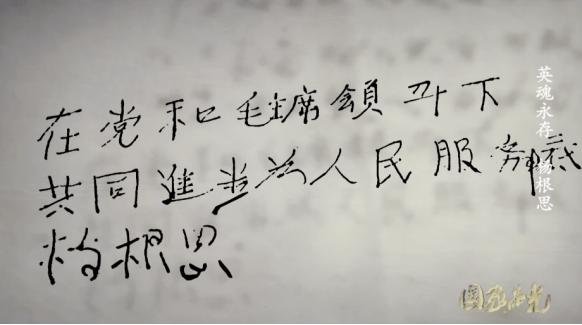 在党和毛主席領下
共同進步为人民服务
杨根思
英魂永存 杨根思